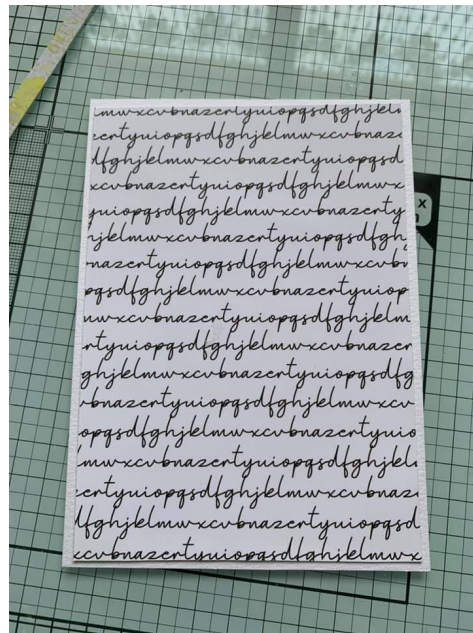 mwxcvbnazertyuiopqsdfghjkl
zertyuiopqsdfghjklmwxcvbnaz
dfghjklmwxcvbnazertyuiopqsd
xcvbnazertyuiopqsdfghjklmwx
yuiopqsdfghjklmwxcvbnazerty
hjklmwxcvbnazertyuiopqsdfgh
bnazertyuiopqsdfghjklmwxcvb
pqsdfghjklmwxcvbnazertyuiop
mwxcvbnazertyuiopqsdfghjklm
rtyuiopqsdfghjklmwxcvbnazer
ghjklmwxcvbnazertyuiopqsdfg
vbnazertyuiopqsdfghjklmwxcv
opqsdfghjklmwxcvbnazertyuio
lmwxcvbnazertyuiopqsdfghjkl
zertyuiopqsdfghjklmwxcvbnaz
dfghjklmwxcvbnazertyuiopqsd
xcvbnazertyuiopqsdfghjklmwx